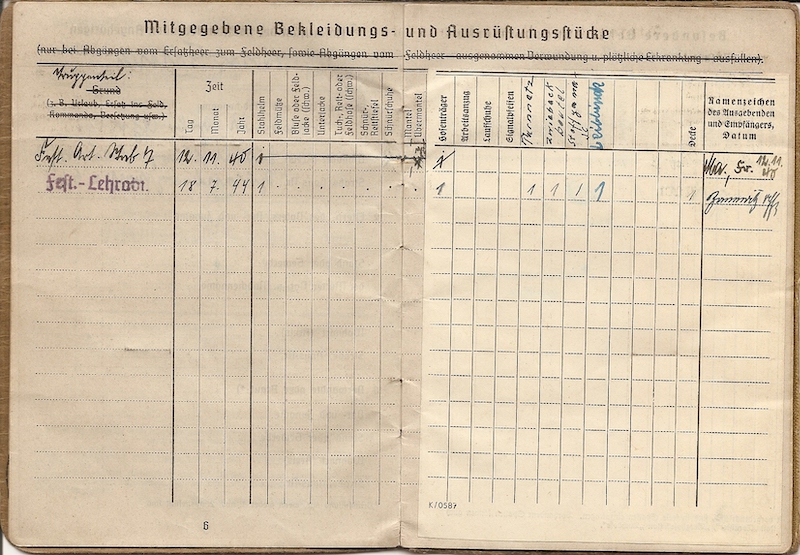 Mitgegebene Bekleidungs- und Ausrüstungsstücke
(nur bei Abgängen vom Ersatzheer zum Feldheer, sowie Abgängen vom Feldheer – ausgenommen Verwundung u. plötzliche Erkrankung – ausfüllen).
Truppenteil:
Grund
(z. B. Urlaub, Ersatz ins Feld,
Kommando, Versetzung usw.)
Zeit
Tag
Monat
Jahr
Stahlhelm
Feldmütze
Bluse oder Feld-
jacke (schw.)
Unterjacke
Tuch-, Reit- oder
Feldhose (schw.)
Schnür-,
Reitstiefel
Schnürschuhe
Mantel
Übermantel
Hosenträger
Arbeitsanzug
Laufschuhe
Signalpfeifen
beutel
Decke
Namenzeichen
des Ausgebenden
und Empfängers,
Datum
Fest. Art. Stab 7 12. 11. 40 1 1 12.11. 40
Fest.-Lehrabt. 18 7. 44 1 . . . . . . . 1 1 1 1 1 1
6
K/0587